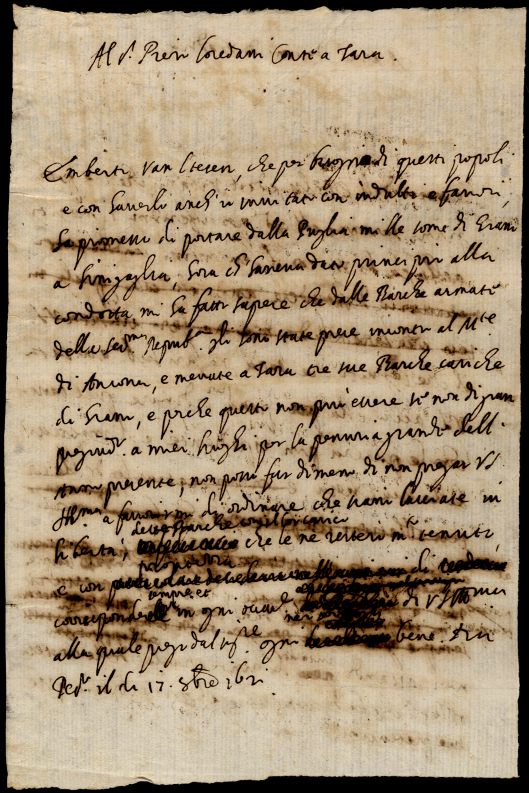 Al S.r Pietro Loredani Conte a Zara.
Emberti Van Stesen, che per bisogni di questi popoli
e con haverlo anch'io invitato con indulti e favori,
ha promesso di portare dalla Puglia mille some di Grani
a Sinigaglia, hora ch'haveva dato principio alla
condotta, mi ha fatto sapere che dalle Barche armate
della Ser.ma Repub.ca gli sono state prese incontro al M.te
di Ancona, e menate a Zara tre sue Barche cariche
di Grani, e perche questo non può essere se non di gran
pregiud.o a miei luoghi per la penuria grande dell'
Anno presente, non posso far di meno di non pregar VS
Ill.ma a favorirmi di ordinare che siano lasciate in
dette barche con il lor carico
libertà, che le ne resterò m.to tenuto,
e con di
sempre
corrispondere in ogni di VS Ill.ma
alla quale prego dal Sig.re ogni bene. Di
Pes.o il di 17. 8bre 1621.